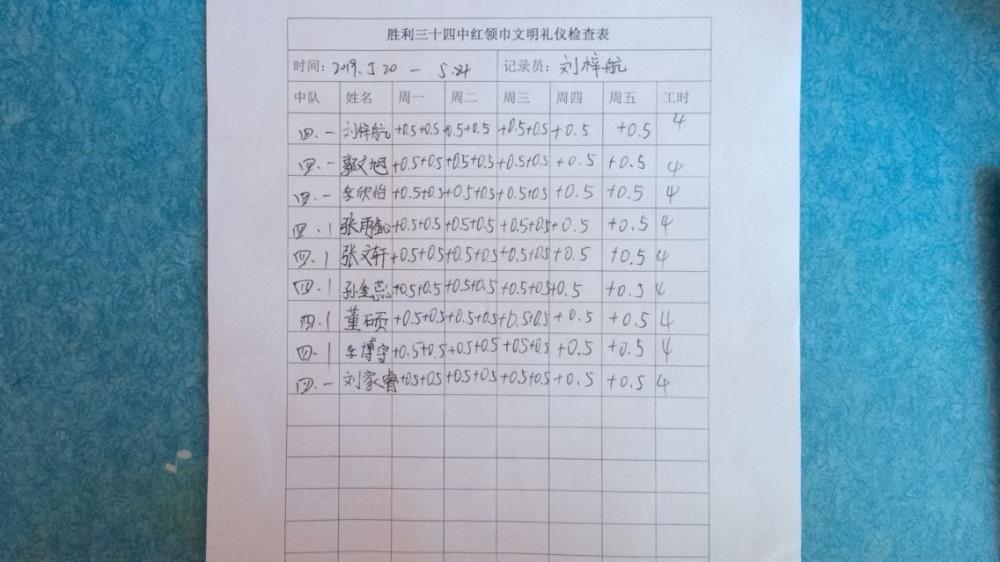 胜利三十四中红领巾文明礼仪检查表
时间: 2019.5 20 — 5.24 记录员: 刘梓航
中队 姓名 周一 周二 周三 周四 周五 工时
四.一 刘梓航 +0.5+0.5 +0.5+0.5 +0.5+0.5 +0.5 +0.5 4
四.一 郭文旭 +0.5+0.5 +0.5+0.5 +0.5+0.5 +0.5 +0.5 4
四.一 李欣怡 +0.5+0.5 +0.5+0.5 +0.5+0.5 +0.5 +0.5 4
四.1 张雨 +0.5+0.5 +0.5+0.5 +0.5+0.5 +0.5 +0.5 4
四.1 张文轩 +0.5+0.5 +0.5+0.5 +0.5+0.5 +0.5 +0.5 4
四.1 孙金 +0.5+0.5 +0.5+0.5 +0.5+0.5 +0.5 +0.5 4
四.1 董硕 +0.5+0.5 +0.5+0.5 +0.5+0.5 +0.5 +0.5 4
四.1 李博宇 +0.5+0.5 +0.5+0.5 +0.5+0.5 +0.5 +0.5 4
四.一 刘家睿 +0.5+0.5 +0.5+0.5 +0.5+0.5 +0.5 +0.5 4